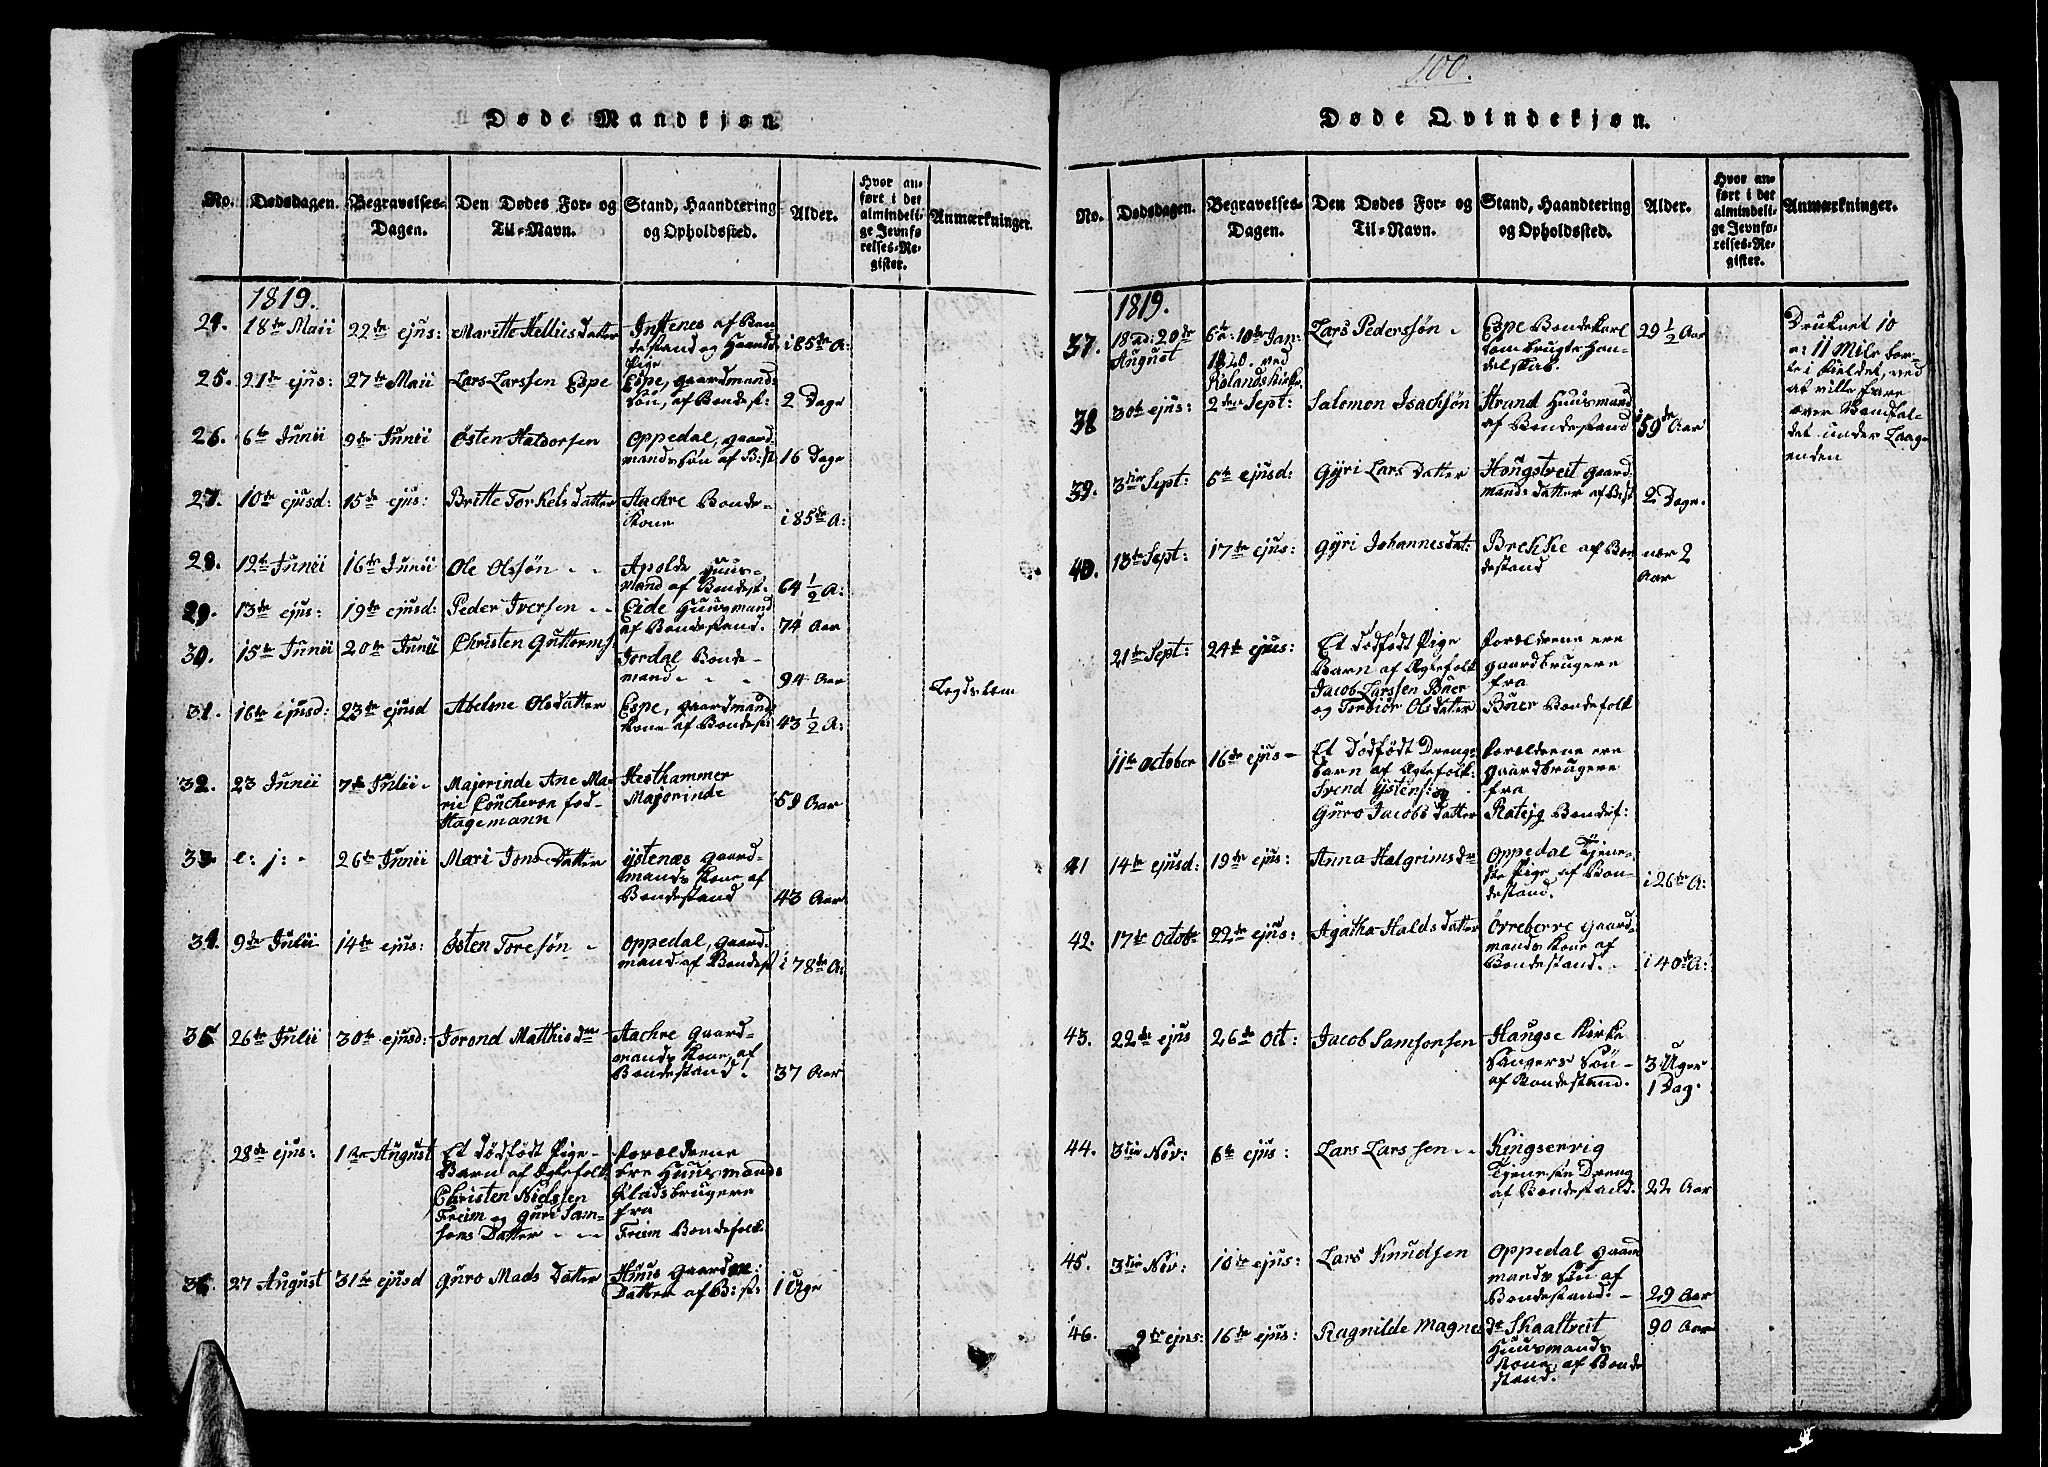 100.
Døde Mandkjøn.
No.
Dødsdagen.
Begravelses-
Dagen.
Den Dødes For- og
Til-Navn.
Stand, Haandtering
og Opholdssted.
Alder.
Hvor an-
ført i det
almindeli-
ge Jevnfø-
relses-Re-
gister.
Anmærkninger.
1819.
24. 18de Maii 22de ejus: Maritte Hellies datter
af Bon-
destand og
Pige
i 85de A:
25. 21de ejus: 27de Maii Lars Larssen Espe
Espe, gaardmands
søn, af Bondest:
2 Dage
26. 6te Junii 9de Junii Østen Haldorsen
Oppedal, gaard-
mands søn af B:st
16 Dage
27. 10de ejusd: 15de ejus: Britte Torkels Datter
Aachre Bonde-
Kone
i 85de A:
28. 12te Junii 16de Junii Ole Olssøn
Apolde Huus-
mand af Bondest.
64 1/2 A:
29. 13de ejus: 19de ejusd: Peder Iversen
Eide Huusmand
af Bondestand.
74 Aar
30. 15te Junii 20de Junii Christen Guttorms:
Jordal Bonde-
mand
94 Aar
Legdslem
31. 16te ejusd: 23de ejusd Abelone Olsdatter
Espe, gaardmands
kone af Bondest:
43 1/2 A:
32. 23 Junii 7de Julii Majorinde Ane Ma-
rie Coucheron fød-
Hagemann
Hesthammer
Majorinde
59 Aar
33. e: j: 26de Junii Mari Jons Datter
Ystenæs gaard-
mands Kone af
Bondestand
43 Aar
34. 9de Julii 14de ejus: Østen Toresøn
Oppedal, gaard-
mand af Bondest
i 78de A:
35 26de Julii 30te ejusd: Torond Matthisd
Aachre gaard-
mands Kone, af
Bondestand.
37 Aar
28de ejus: 1ste August Et Dødfødt Pige-
Barn af Ægtefolk
Christen Nielssen
Freim og Guri Sam-
sons Datter
Forældrene
ere Huusmands
Pladsbrugere
fra
Freim Bondefolk
36. 27 August 31te ejusd Guro Mads Datter
Huus gaardm:
Datter af B:st:
1 Uge
Døde Qvindekjøn.
No.
Dødsdagen.
Begravelses-
Dagen.
Den Dødes For- og
Til-Navn.
Stand, Haandtering
og Opholdssted.
Alder.
Hvor an-
ført i det
almindeli-
ge Jevnfø-
relses-Re-
gister.
Anmærkninger.
1819.
37. 18 ad: 20de
August
6te a: 10de Jan:
1820. ved
Rølands Kirke.
Lars Pederssøn
Espe Bondekarl
som brugte han-
delskab.
29 1/2 Aar
Druknet 10
a: 11 Mile bor-
te i Fieldet, ved
at ville fare
over Bomfal-
det under Laag-
enden
38 30te ejus: 2den Sept: Salomon Isachsøn
Strand Huusmand
af Bondestand
i 59de Aar
39. 3die Sept: 6te ejusd: Gyri Lars Datter
Hougstveit Gaard-
mands datter af Best
2 Dage.
40. 13de Sept: 17de ejus: Gyri Johannesdat:
Brekke af Bon
destand
nær 2
Aar
21de Sept: 24de ejus: Et Dødfødt Pige
Barn af Ægtefolk
Jacob Larssen Buer
og Torbiør Olsdatter
Forældrene ere
gaardbrugere
fra
Buer Bondefolk
11te October 16de ejus Et Dødfødt Dreng-
barn af Ægtefolk:
Trond Ystens: og
Guro Jacobs Datter
Forældrene ere
gaardbrugere
fra
Bondef:
41 14de ejusd: 19de ejus: Anna Halgrims
Oppedal Tjene-
ste Pige af Bon-
destand.
i 26de A:
42. 17de Octobr 22de ejus: Agatha Halds Datter
Ørreberre gaard-
mands Kone af
Bondestand.
i 40de A:
43. 22de ejus 26de Oct: Jacob Samsonsen
Haugse Kirke
Sangers Søn
af Bondestand.
3 Uger
1 Dag.
44. 3die Nov: 6te ejus: Lars Larssen
Kingservig
Tjeneste Dreng
af Bondestand.
22 Aar
45. 3die Nov: 10de ejus: Lars Knudsen
Oppedal gaard
mands Søn af
Bondestand.
29 Aar
46. 9de ejus: 16de ejus: Ragnilde Magnes
dr Skaaltveit
Huusmands
Kone, af Bonde
stand.
90 Aar